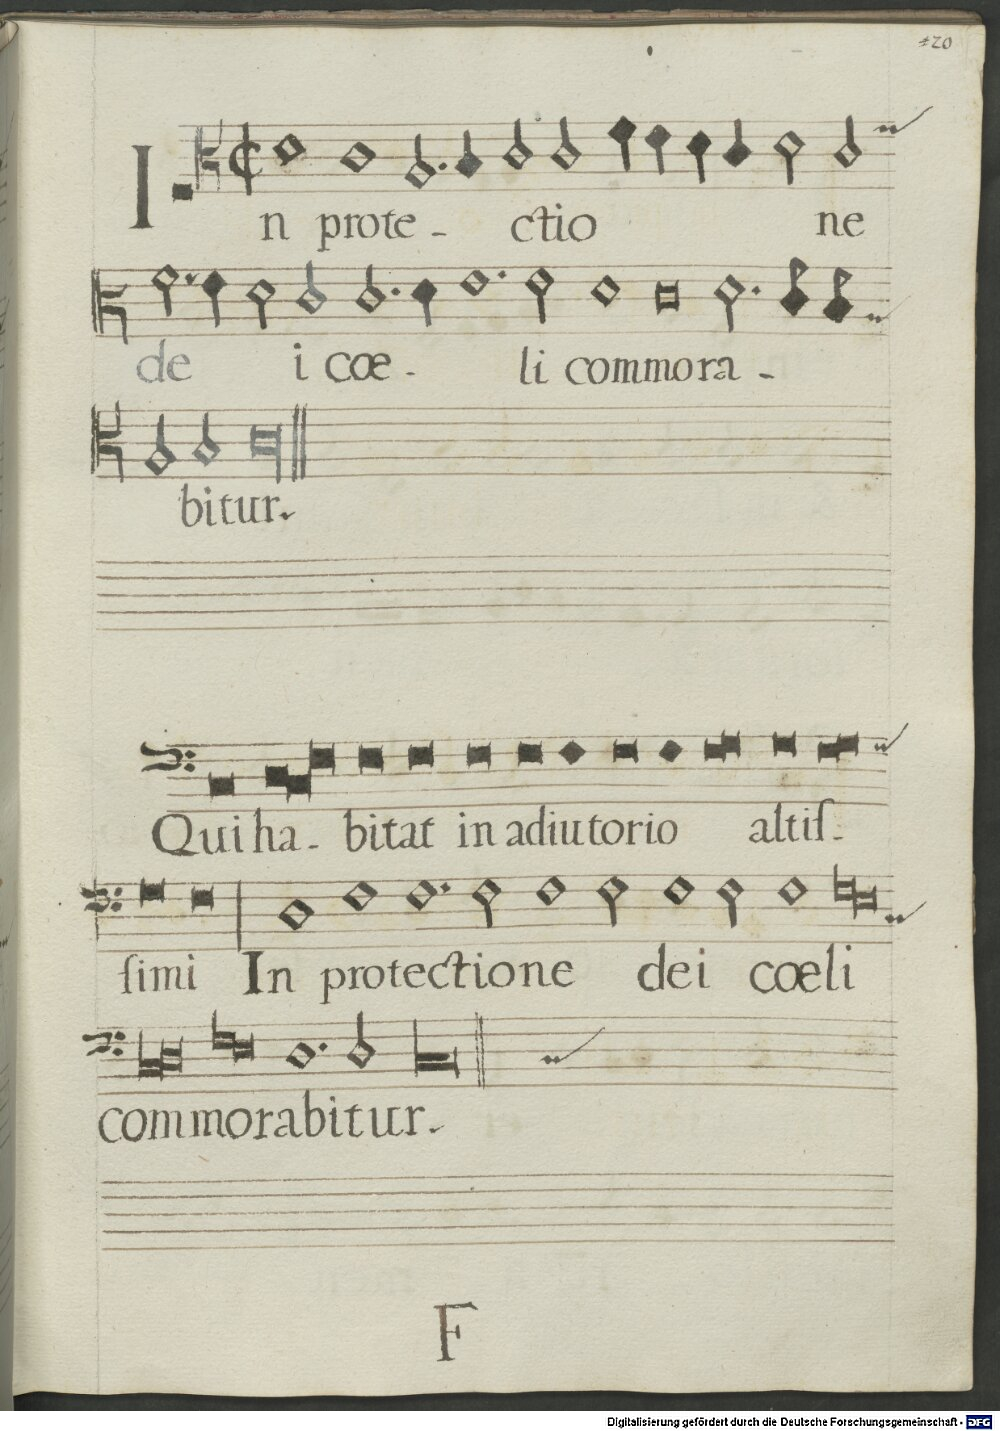 120
In prote - ctio ne
de i cœ - li commora -
bitur.
Qui ha - bitat in adiutorio altiſ -
ſimi In protectione dei cœli
commorabitur.
F
Digitalisierung gefördert durch die Deutsche Forschungsgemeinschaft - DFG